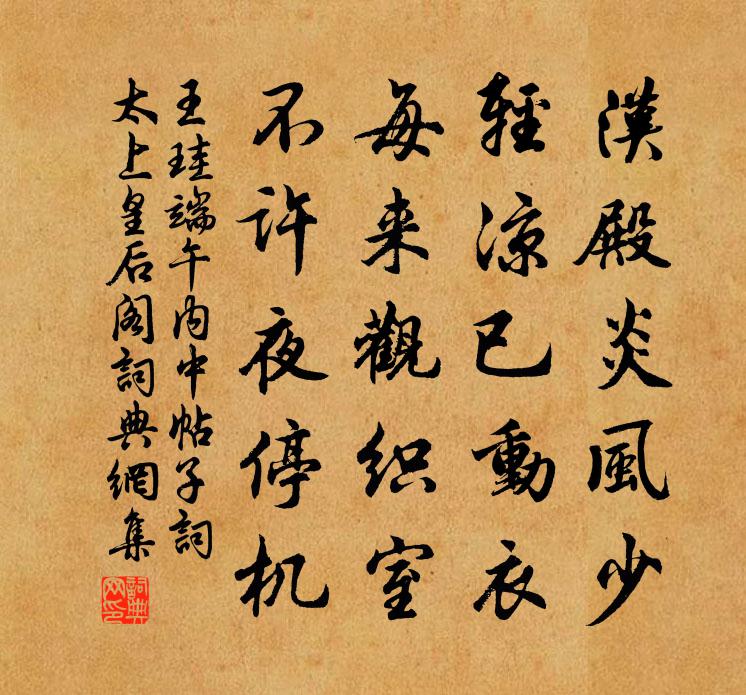 漢殿炎風少
輕涼已動衣
每来觀织室
不许夜停机
王珪端午内中帖子詞
太上皇后阁詞典網集
詞典网印